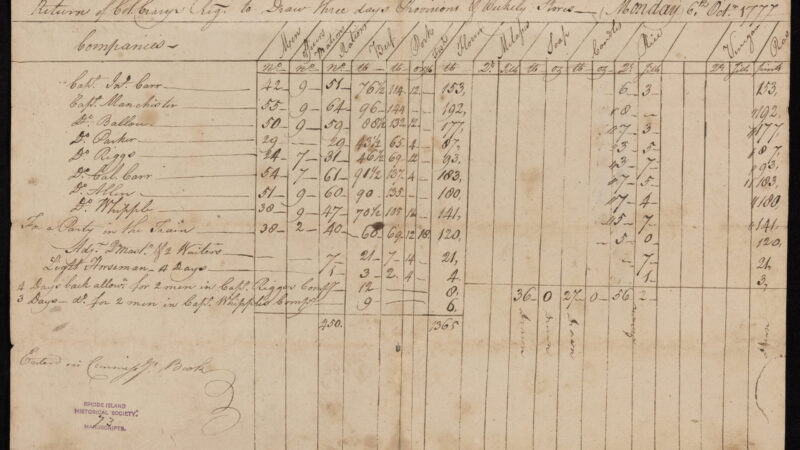 Return of Col. Crary's Reg. to Draw three days Provisions & Weekly Stores — Monday 6th Octr 1777
Companies — Men Rations Rations Beef Pork Flour Melasses Soap Candles Rice Vinegar Peas
No No No lb lb oz lb Gs gills lb oz lb oz Gs gills Gs gills pints
Capt. Jno. Carr 42 9 51 76½ 114 12 153, 6 3 153,
Capt. Manchester 55 9 64 96 144 192, 8 192,
Do Ballou 50 9 59 88½ 132 12 177, 7 3 177,
Do Parker 29 29 43½ 65 4 87, 3 5 87,
Do Riggs 24 7 31 46½ 69 12 93, 3 7 93,
Do Cal. Carr 54 7 61 91½ 137 4 183, 7 5 183,
Do Allin 51 9 60 90 135 180, 7 4 180
Do Whipple 38 9 47 70½ 105 12 141, 5 7 141,
For a Party in the Train 38 2 40 60 69 12 18 120, 5 0 120,
Adjt. Qmastr. & 2 Waiters 7 21 7 14 21, 7 21,
Light Horseman 4 Days 1 3 2 4 4 1 3,
4 Days back allowce. for 2 men in Capt. Riggs's Compy 12 8,
3 Days do. for 2 men in Capt. Whipple's Compy 9 6, 36 0 27 0 56 2
450. 1365
Enterd in Book
RHODE ISLAND
HISTORICAL SOCIETY.
MANUSCRIPTS.